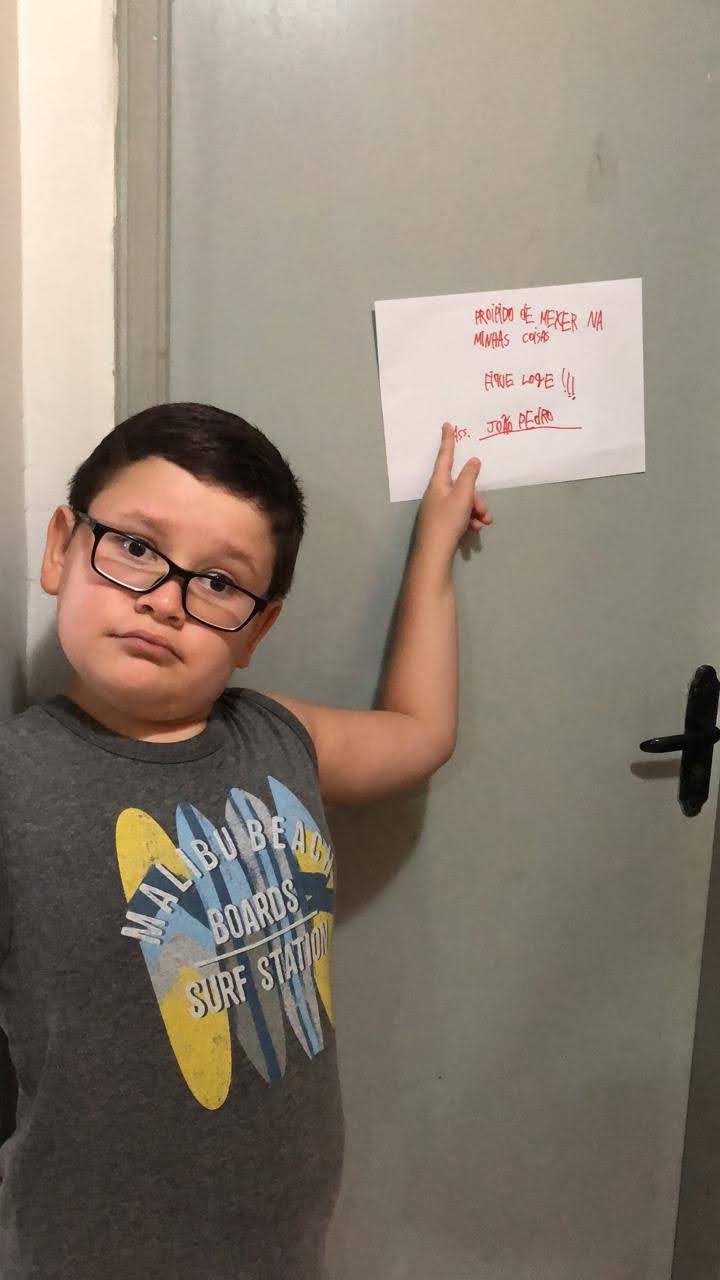 PROIPIDO DE MEXER NA
MINHAS COISAS
FIQUE LOGE !!!
Ass. JOÃO PEDRO
MALIBU BEACH
BOARDS
SURF STATION